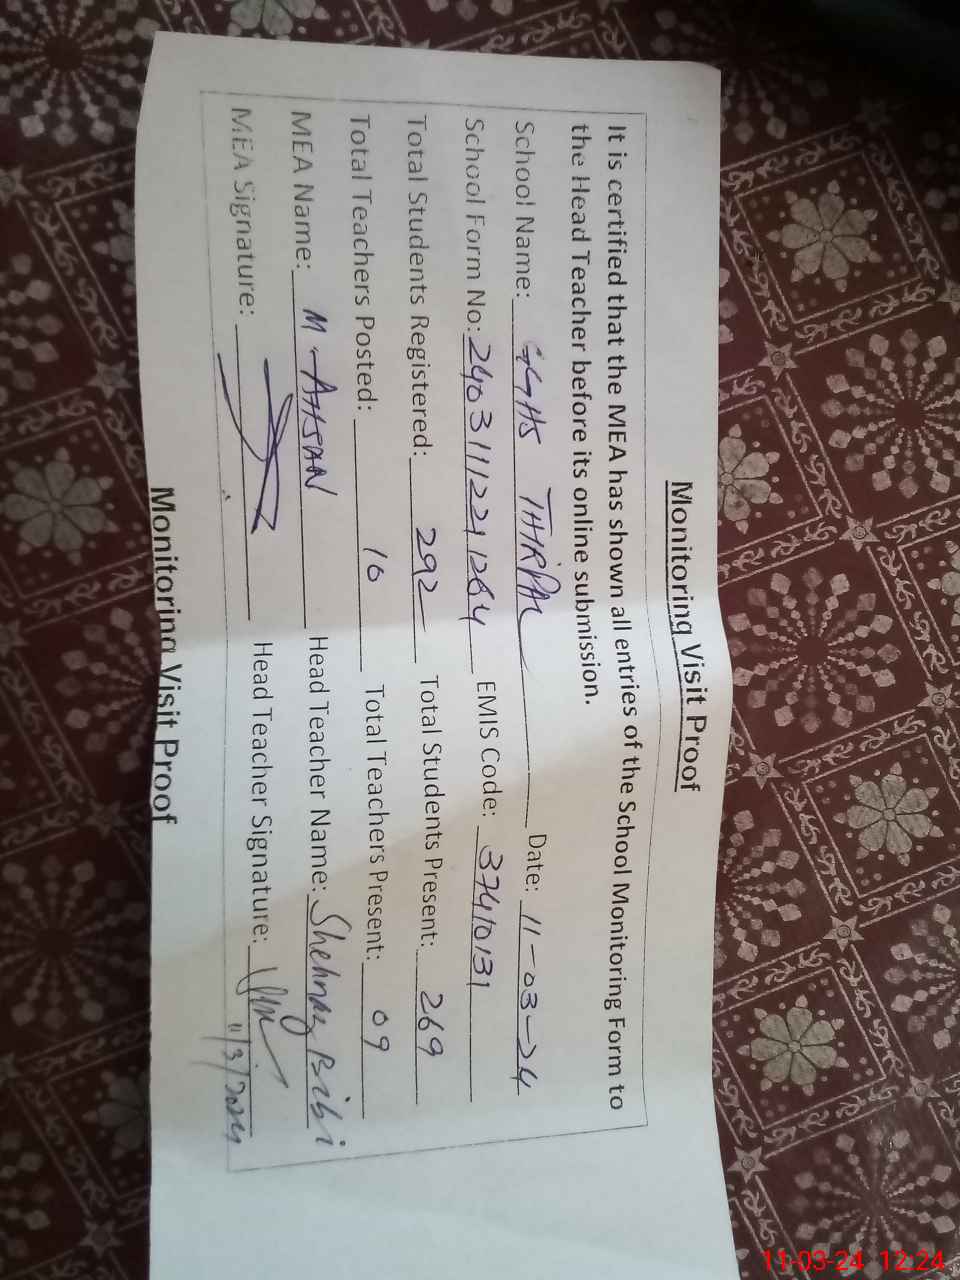 Monitoring Visit Proof
It is certified that the MEA has shown all entries of the School Monitoring Form to
the Head Teacher before its online submission.
School Name: GGHS THIRPAL Date: 11-03-24
School Form No: 2403111221264 EMIS Code: 37410131
Total Students Registered: 292 Total Students Present: 269
Total Teachers Posted: 10 Total Teachers Present: 09
MEA Name: M. AHSAN Head Teacher Name: Shehnaz Bibi
MEA Signature: Head Teacher Signature:
11/3/2024
Monitoring Visit Proof
11-03-24 12:24